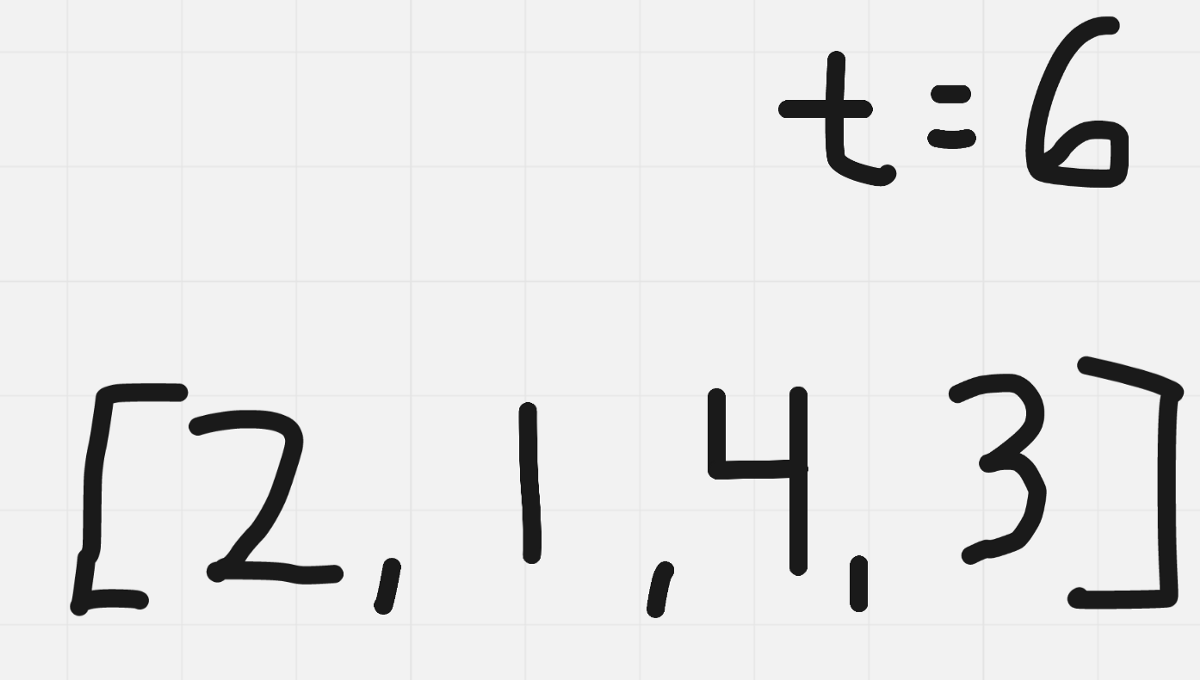 t = 6
[2, 1, 4, 3]